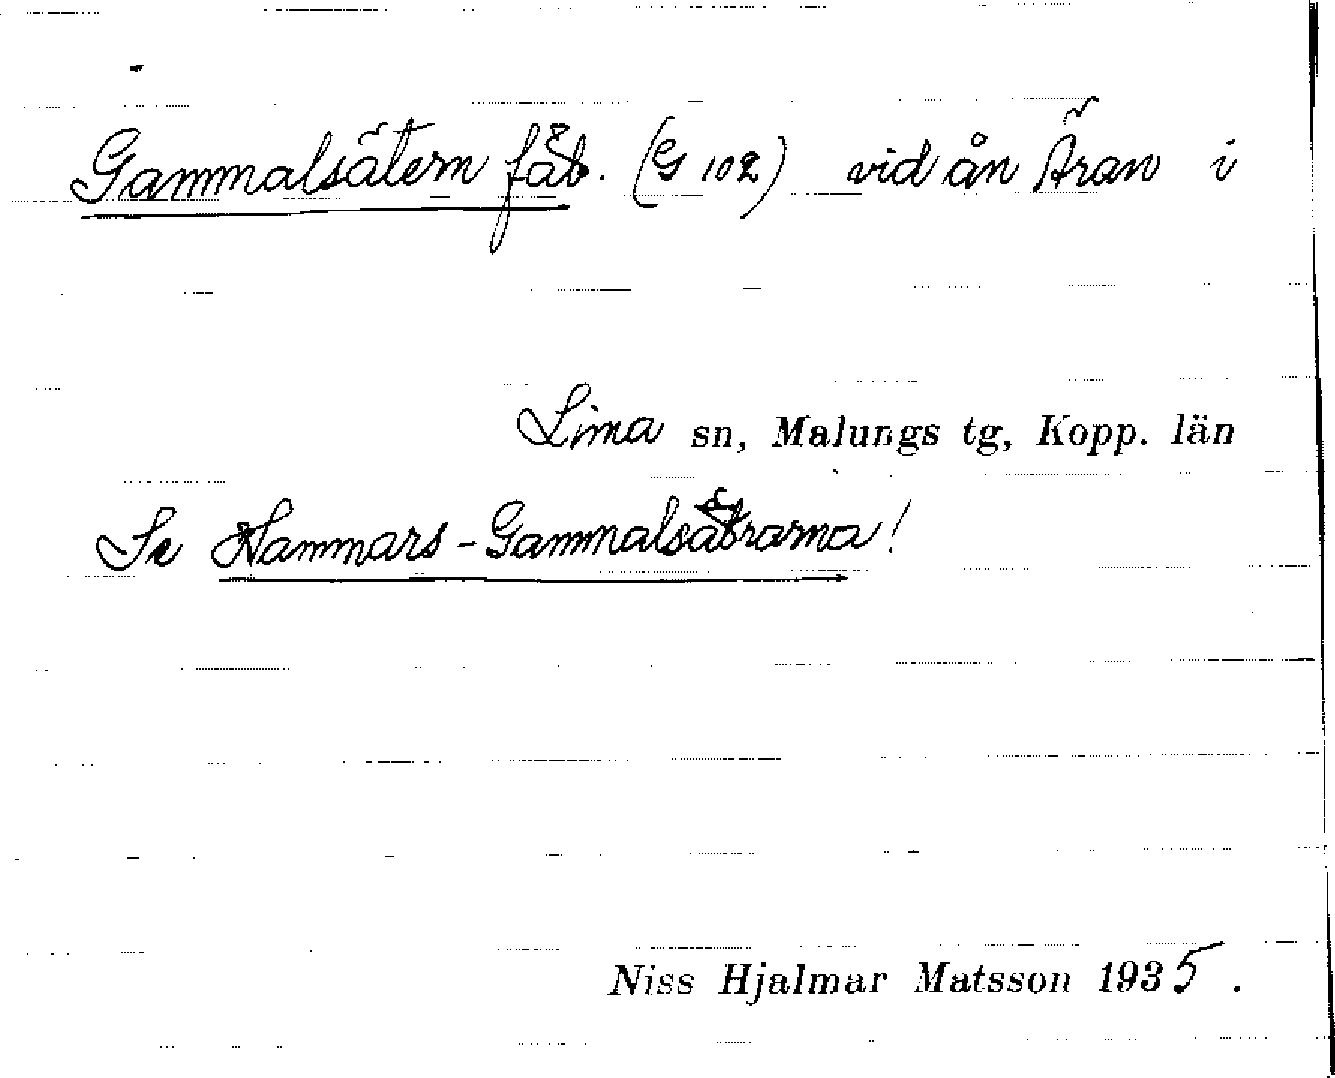 Gammalsätern fäb. (G 102) vid ån Äran i
Lima sn, Malungs tg, Kopp. län
Se Hammars-Gammalsätrarna!
Niss Hjalmar Matsson 1935.